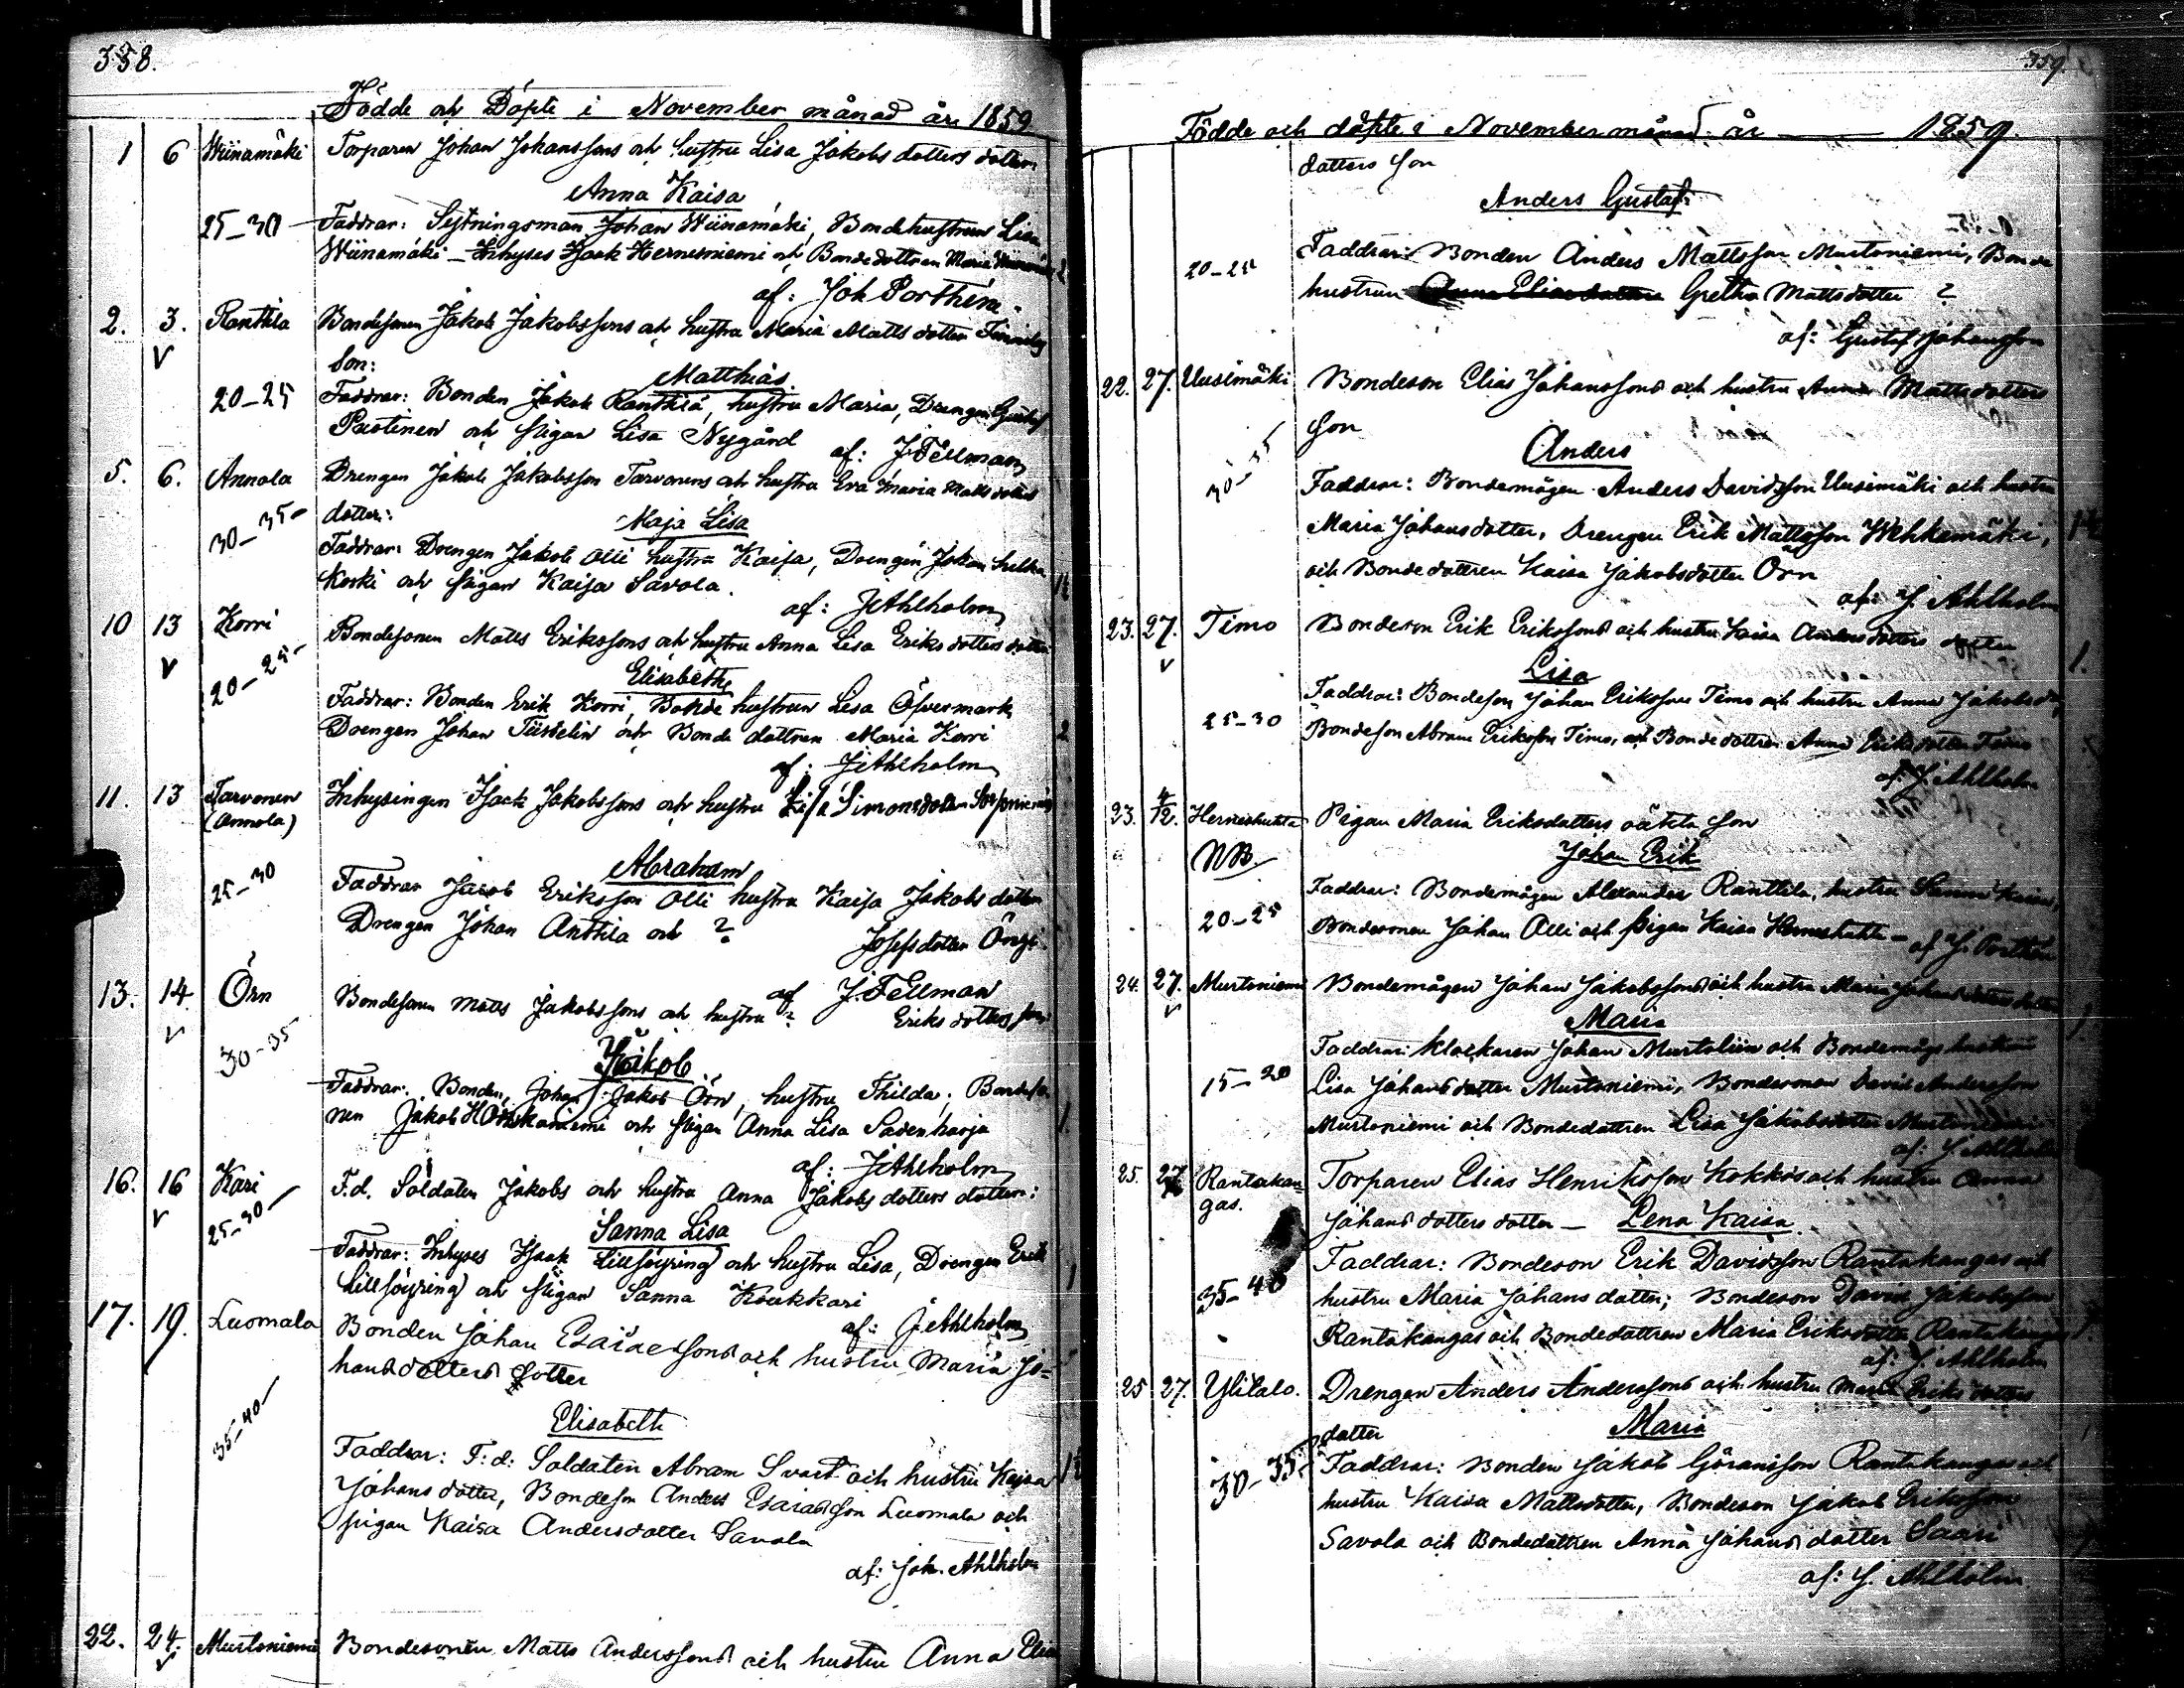 358.
Födde och Döpte i November månad år 1859
1 6 Wiinamäki Torparen Johan Johanssons och hustru Lisa Jakobs dotters dotter
Anna Kaisa
25-30 Faddrar: Sexman Johan Wiinamäki, Bondehustrun Lisa
Wiinamäki - Inhyses Isaak Hernesniemi och Bondedottren Maria
af: Joh Porthén
2. 3. Ranttila Bondesonen Jakob Jakobssons och hustru Maria Matts dotter
v Son:
Matthias
20-25 Faddrar: Bonden Jakob Ranttila, hustru Maria, Drengen Gustaf
och pigan Lisa Nygård
af: J Fellman
5. 6. Annala Drengen Jakob Jakobsson Tarvonens och hustru Eva Maria Matts dotters
dotter:
Maja Lisa
30-35 Faddrar: Drengen Jakob Olli hustru Kaisa, Drengen Johan
Koski och pigan Kaisa Savola.
af: J Ahlholm
10 13 Korri Bondesonen Matts Erikssons och hustru Anna Lisa Eriks dotters dotter
v
Elisabeth
20-25 Faddrar: Bonden Erik Korri, Bonde hustrun Lisa Öfvermark
Drengen Johan och Bonde dottren Maria Korri 2
af: J Ahlholm
11. 13 Tarvonen Inhysingen Isaak Jakobssons och hustru Lisa Simonsdotter
(Annala)
Abraham
25-30 Faddrar Jacob Eriksson Olli hustru Kaisa Jakobs dotter
Drengen Johan Anttila och ? Josefsdotter
af J. Fellman
13. 14 Örn Bondesonen Matts Jakobssons och hustru ? Eriks dotters son
v
Jakob
30-35 Faddrar: Bonden Johan Jakob Örn, hustru Thilda, Bondeso
nen Jakob och pigan Anna Lisa Sadenharja 1
af: J Ahlholm
16. 16 Kari F.d. Soldaten Jakobs och hustru Anna Jakobs dotters dotter:
v
Sanna Lisa
25-30 Faddrar: Inhyses Isaak Lillsöyring och hustru Lisa, Drengen Erik
Lillsöyring och pigan Sanna Koukkari 1
af: J Ahlholm
17. 19. Luomala Bonden Johan Esaiaessons och hustru Maria Jo-
hans dotters dotter
Elisabeth
35-40 Faddrar: F:d: Soldaten Abram Svart och hustru Kajsa
Johans dotter, Bondeson Anders Esaiasson Luomala och
pigan Kaisa Andersdotter Savola
af: Joh. Ahlholm
22. 24. Murtoniemi Bondesonen Matts Anderssons och hustru Anna Elias
v
359.
Födde och döpte i November månad år 1859.
dotters son
Anders Gustaf
20-25 Faddrar: Bonden Anders Mattsson Murtoniemi, Bonde
hustrun Gretha Mattsdotter ?
af: Gustaf Johansson
22. 27. Uusimäki Bondeson Elias Johanssons och hustru Anna Mattsdotters
son
Anders
30-35 Faddrar: Bondemågen Anders Davidsson Uusimäki och hustru
Maria Johansdotter, Drengen Erik Mattsson Wehkamäki,
och Bondedottren Kaisa Jakobsdotter Örn
af: J. Ahlholm
23. 27. Timo Bondeson Erik Erikssons och hustru Kaisa Andersdotters dotter
v 1.
Lisa
25-30 Faddrar: Bondeson Johan Eriksson Timo och hustru Anna Jakobsdr,
Bondeson Abram Eriksson Timo, och Bondedottren Anna Eriksdotter Timo
af: J. Ahlholm
23. 4/12. Herneshuhta Pigan Maria Eriksdotters oäkta son
NB.
Johan Erik
20-25 Faddrar: Bondemågen Alexander Ranttila, hustru Sanna Kaisa,
Bondesonen Johan Olli och pigan Kaisa Herneshuhta - af J. Porthén
24. 27. Murtoniemi Bondemågen Johan Jakobssons och hustru Maria Johansdotters dotter
v
Maria
15-20 Faddrar: klockaren Johan Murtolin och Bondemågs hustrun
Lisa Johansdotter Murtoniemi, Bondesonen David Andersson
Murtoniemi och Bondedottren Lisa Jakobsdotter Murtoniemi
af: J. Ahlholm
25. 27 Rantakan- Torparen Elias Henriksson Kokkos och hustru Anna
gas. Johans dotters dotter - Lena Kaisa
35-40 Faddrar: Bondeson Erik Davidsson Rantakangas och
hustru Maria Johansdotter; Bondeson David Jakobsson
Rantakangas och Bondedottren Maria Eriksdotter Rantakangas
af: J. Ahlholm
25 27. Ylitalo. Drengen Anders Anderssons och hustru Maria Eriks dotters
dotter Maria
30-35 Faddrar: Bonden Jakob Göransson Rantakangas och
hustru Kaisa Mattsdotter, Bondeson Jakob Eriksson
Savola och Bondedottren Anna Johans dotter Saari
af: J. Ahlholm